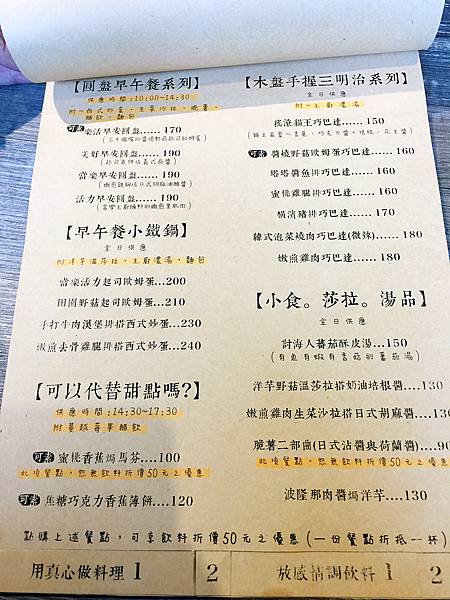 【圓盤早午餐系列】
供應時間:10:00~14:30
附~西式炒蛋、生菜沙拉、脆薯、
麵飲、麵包
可素 樂活早安圓盤......170
美好早安圓盤......190
當樂早安圓盤......190
活力早安圓盤......190
【早午餐小鐵鍋】
全日供應
附洋芋溫莎拉、主廚濃湯、麵包
當樂活力起司歐姆蛋...200
田園野菇起司歐姆蛋...210
手打牛肉漢堡排搭西式炒蛋...230
嫩煎去骨雞腿排搭西式炒蛋...240
【可以代替甜點嗎?】
供應時間:14:30~17:30
附蔓越莓果醋飲
可素 蜜桃香蕉焗馬芬....100
此項餐點,恕無飲料折價50元之優惠
可素 焦糖巧克力香蕉薄餅....120
【木盤手握三明治系列】
全日供應
附~主廚濃湯
搖滾貓王巧巴達......150
可素 醬燒野菇歐姆蛋巧巴達......160
塔塔醬魚排巧巴達......160
蜜桃雞腿排巧巴達......160
橫濱豬排巧巴達......170
韓式泡菜燒肉巧巴達(微辣)......180
嫩煎雞肉巧巴達......180
【小食。莎拉。湯品】
全日供應
討海人蕃茄酥皮湯...150
(有魚有蝦有香菇的蕃茄湯)
洋芋野菇溫莎拉搭奶油培根醬....130
嫩煎雞肉生菜沙拉搭日式胡麻醬....130
脆薯二部曲(日式沾醬與荷蘭醬)....90
此項餐點,恕無飲料折價50元之優惠
波隆那肉醬焗洋芋....130
點購上述餐點,可享飲料折價50元之優惠(一份餐點折抵一杯)
用真心做料理 1 2 放感情調飲料 1 2